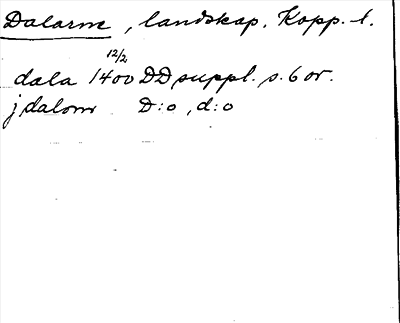 Dalarne, landskap. Kopp. l.
12/2
dala 1400 DD suppl. s. 6 or.
j dalom D:o, d:o